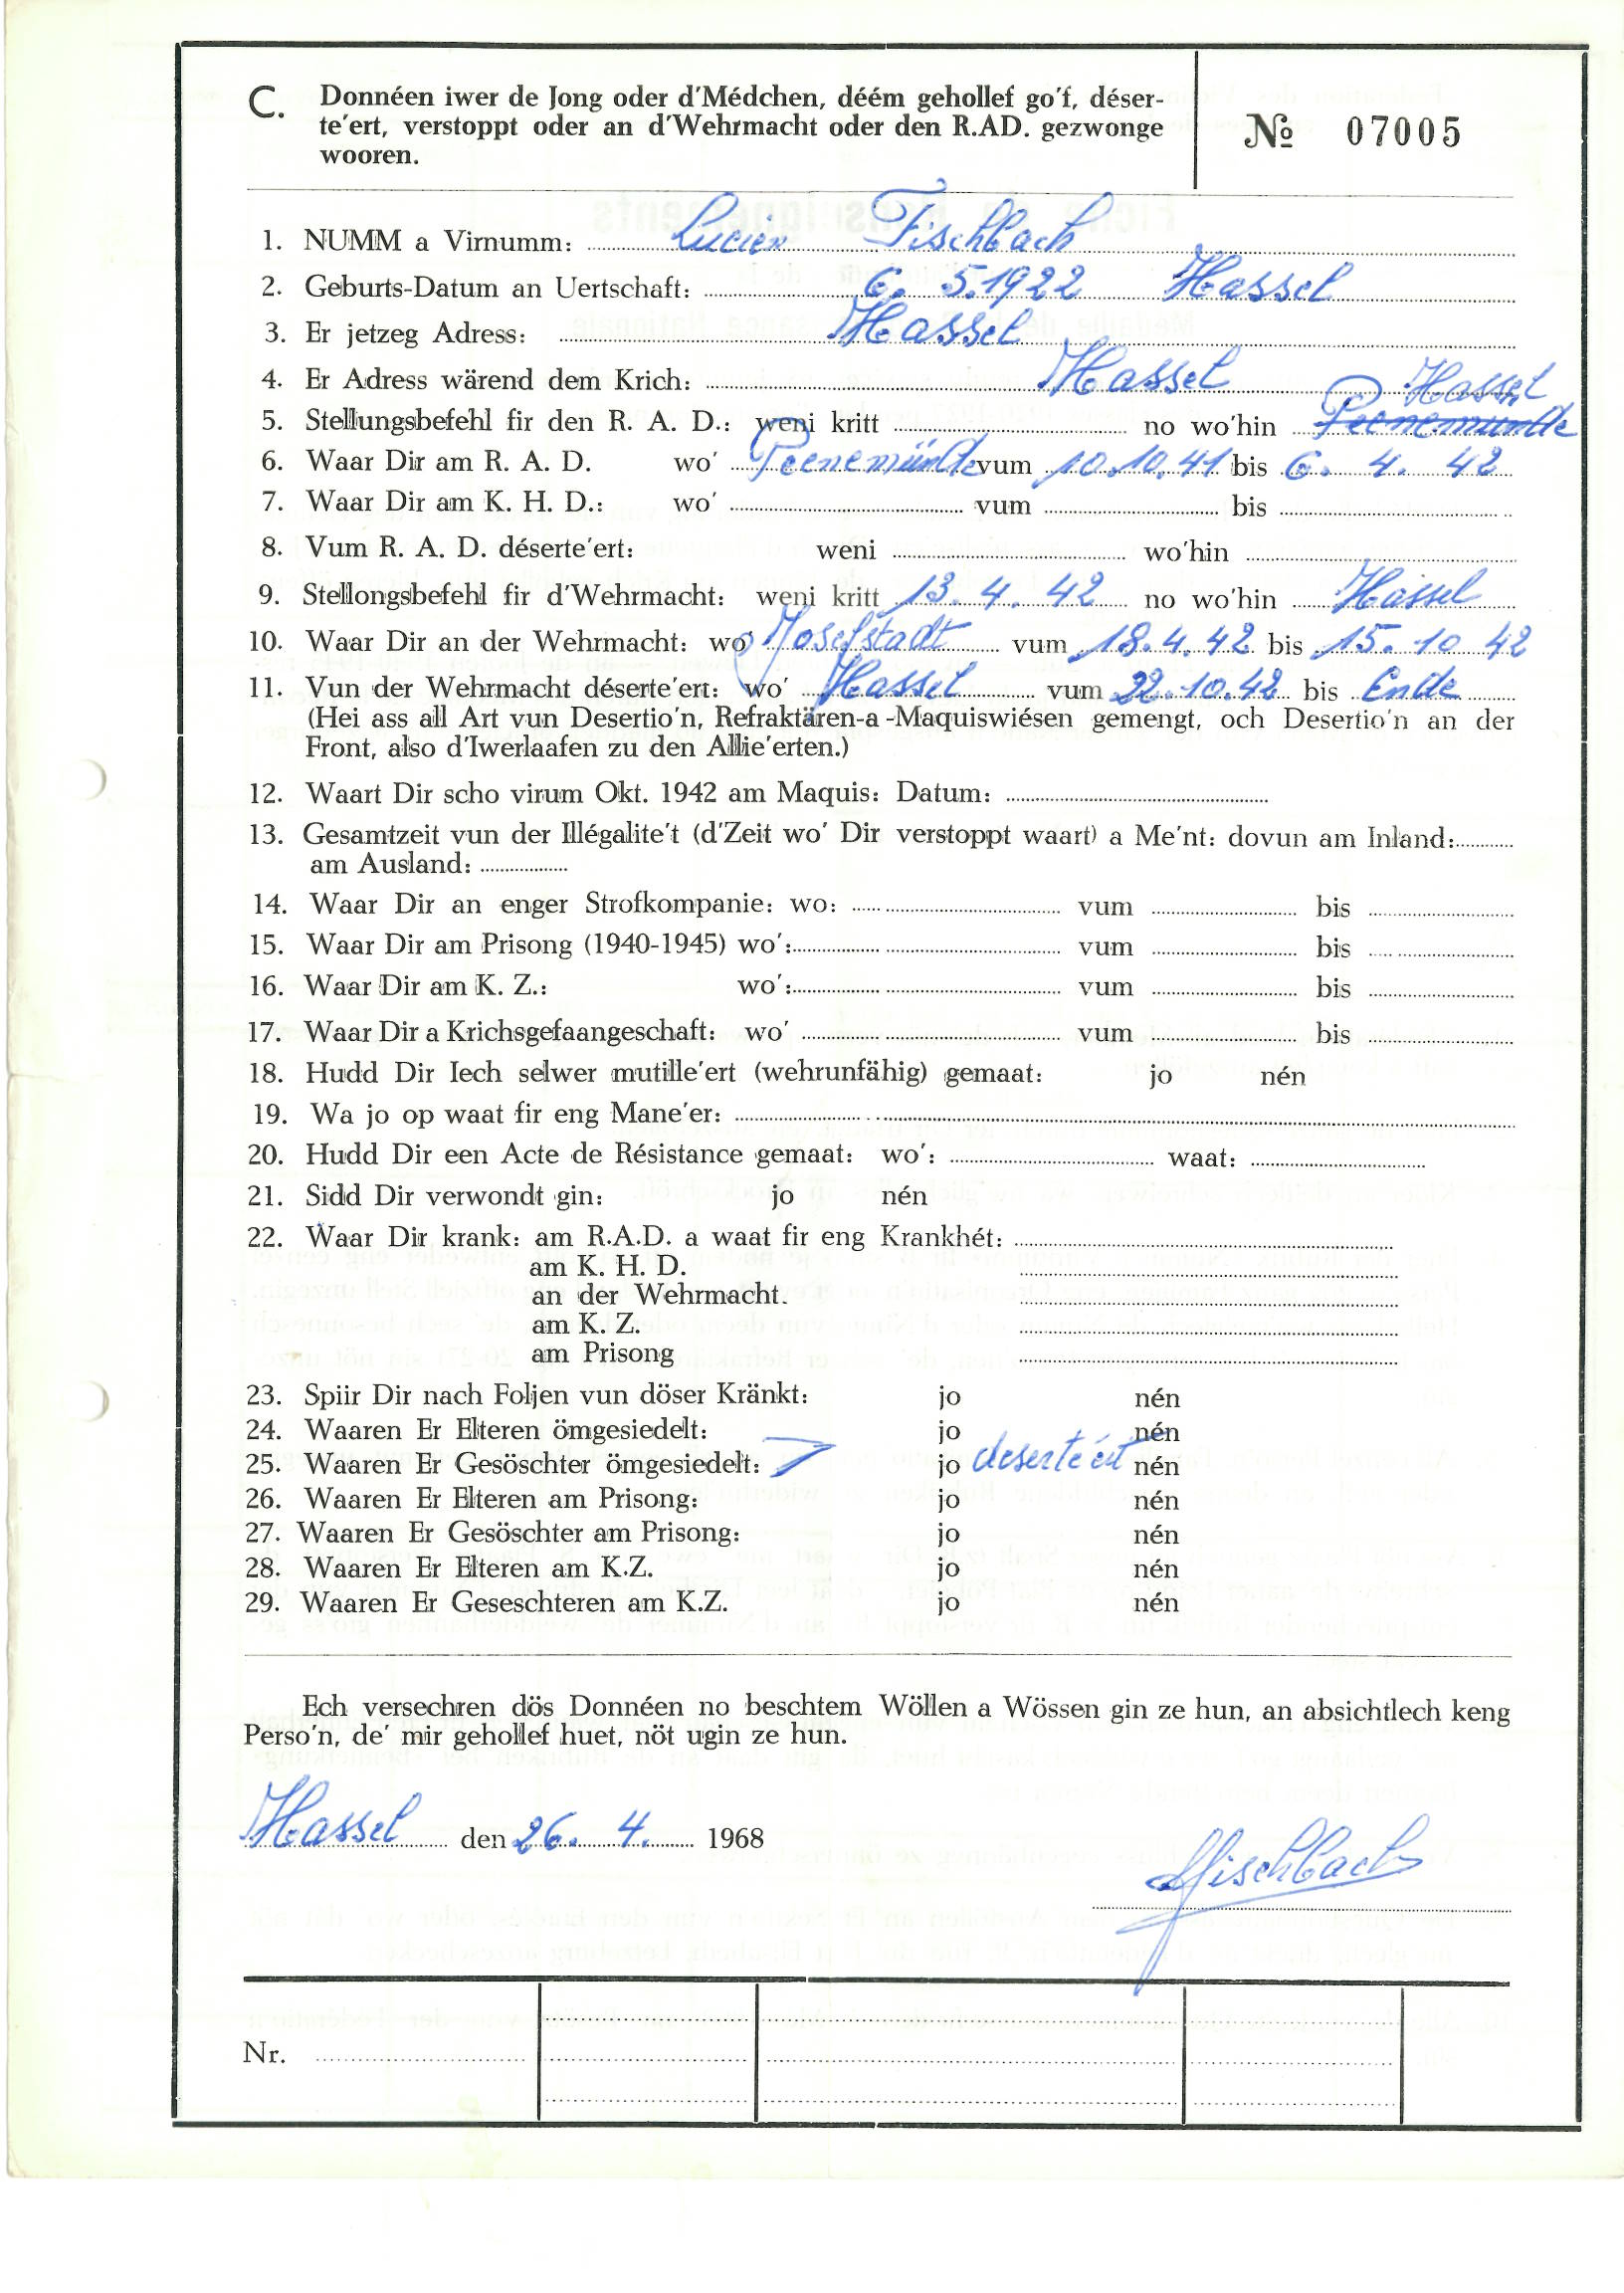 C. Donnéen iwer de Jong oder d'Médchen, déém gehollef go'f, déser-
te'ert, verstoppt oder an d'Wehrmacht oder den R.AD. gezwonge
wooren.
№ 07005
1. NUMM a Virnumm: Lucien Fischbach
2. Geburts-Datum an Uertschaft: 6. 5. 1922 Hassel
3. Er jetzeg Adress: Hassel
4. Er Adress wärend dem Krich: Hassel
Hassel
5. Stellungsbefehl fir den R. A. D.: weni kritt no wo'hin Peenemünde
6. Waar Dir am R. A. D. wo' Peenemünde vum 10.10.41 bis 6. 4. 42
7. Waar Dir am K. H. D.: wo' vum bis
8. Vum R. A. D. déserte'ert: weni wo'hin
9. Stellongsbefehl fir d'Wehrmacht: weni kritt 13. 4. 42 no wo'hin Hassel
10. Waar Dir an der Wehrmacht: wo' Moselstadt vum 18.4.42 bis 15. 10 42
11. Vun der Wehrmacht déserte'ert: wo' Hassel vum 22.10.42 bis Ende
(Hei ass all Art vun Desertio'n, Refraktären-a-Maquiswiésen gemengt, och Desertio'n an der
Front, also d'Iwerlaafen zu den Allie'erten.)
12. Waart Dir scho virum Okt. 1942 am Maquis: Datum:
13. Gesamtzeit vun der Illégalite't (d'Zeit wo' Dir verstoppt waart) a Me'nt: dovun am Inland:
am Ausland:
14. Waar Dir an enger Strofkompanie: wo: vum bis
15. Waar Dir am Prisong (1940-1945) wo': vum bis
16. Waar Dir am K. Z.: wo': vum bis
17. Waar Dir a Krichsgefaangeschaft: wo' vum bis
18. Hudd Dir Iech selwer mutille'ert (wehrunfähig) gemaat: jo nén
19. Wa jo op waat fir eng Mane'er:
20. Hudd Dir een Acte de Résistance gemaat: wo': waat:
21. Sidd Dir verwondt gin: jo nén
22. Waar Dir krank: am R.A.D. a waat fir eng Krankhét:
am K. H. D.
an der Wehrmacht.
am K. Z.
am Prisong
23. Spiir Dir nach Foljen vun döser Kränkt: jo nén
24. Waaren Er Elteren ömgesiedelt: jo nén
25. Waaren Er Gesöschter ömgesiedelt: jo deserte'ert nén
26. Waaren Er Elteren am Prisong: jo nén
27. Waaren Er Gesöschter am Prisong: jo nén
28. Waaren Er Elteren am K.Z. jo nén
29. Waaren Er Geseschteren am K.Z. jo nén
Ech versechren dös Donnéen no beschtem Wöllen a Wössen gin ze hun, an absichtlech keng
Perso'n, de' mir gehollef huet, nöt ugin ze hun.
Hassel den 26. 4. 1968
Fischbach
Nr.